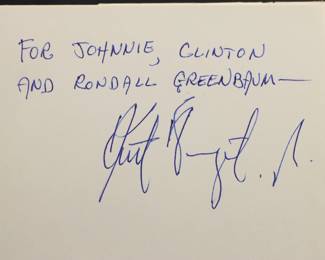 FOR JOHNNIE, CLINTON
AND RONDALL GREENBAUM—
Kurt Vonnegut, Jr.